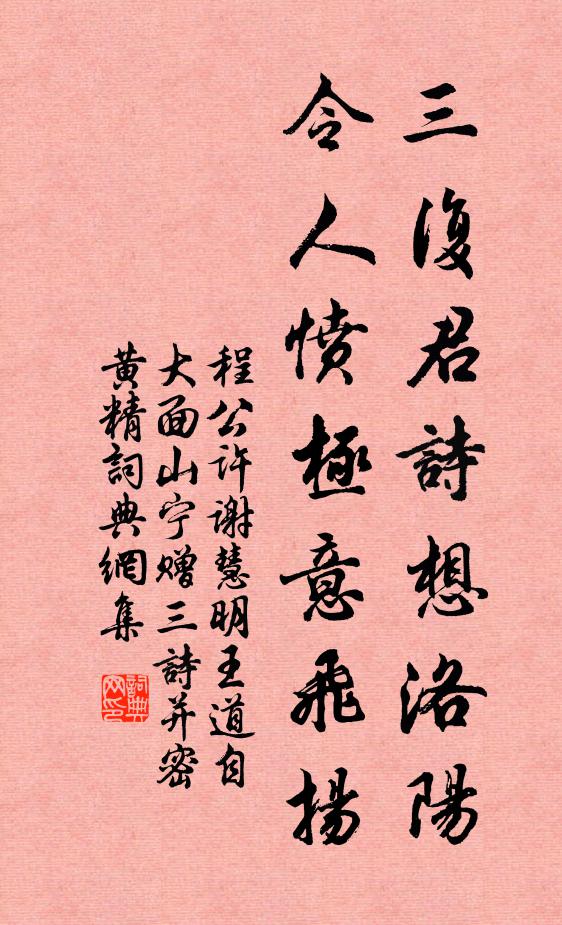 三復君詩想洛陽
令人憤極意飛揚
程公许谢慧明王道自
大面山宁赠三詩并密
黄精詞典網集
詞典网印